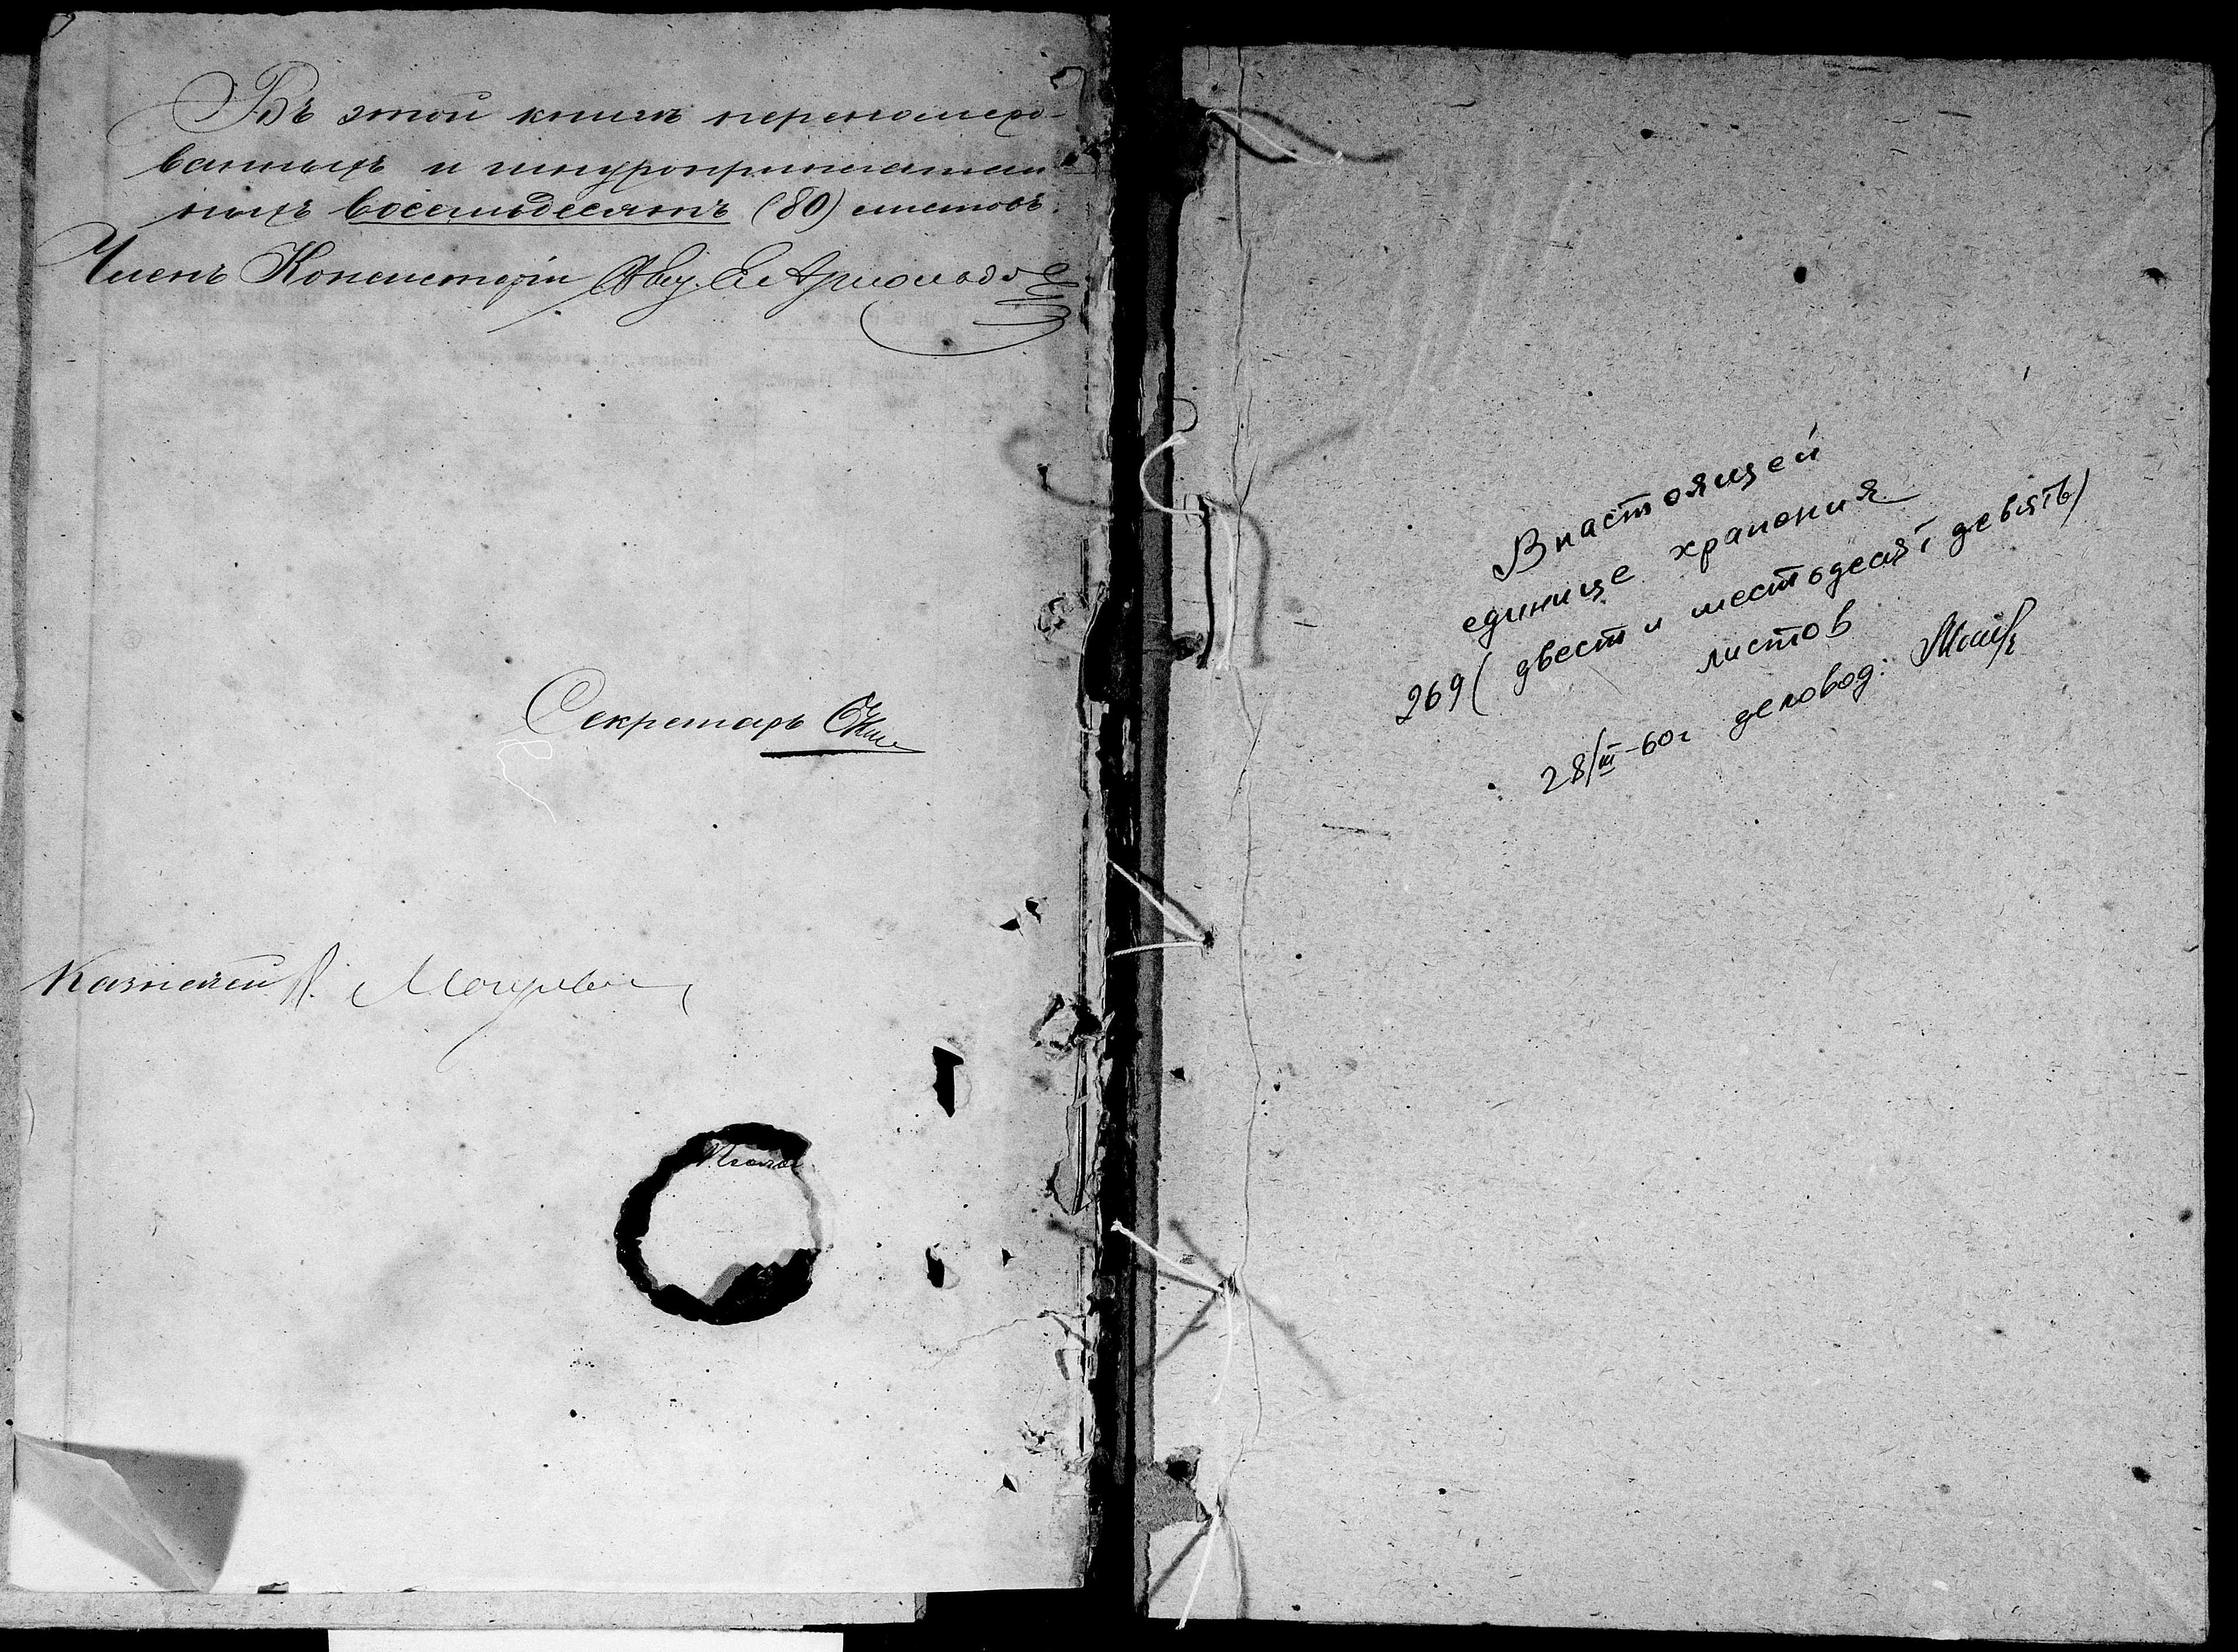 Въ этой книгѣ перенумеро-
ванныхъ и шнуроприпечатан
ныхъ восемьдесятъ (80) листовъ.
Членъ Консисторіи
Секретарь
Казначей
В настоящей
единице хранения
269 (двести шестьдесят девять)
листов
28/III-60г деловод: